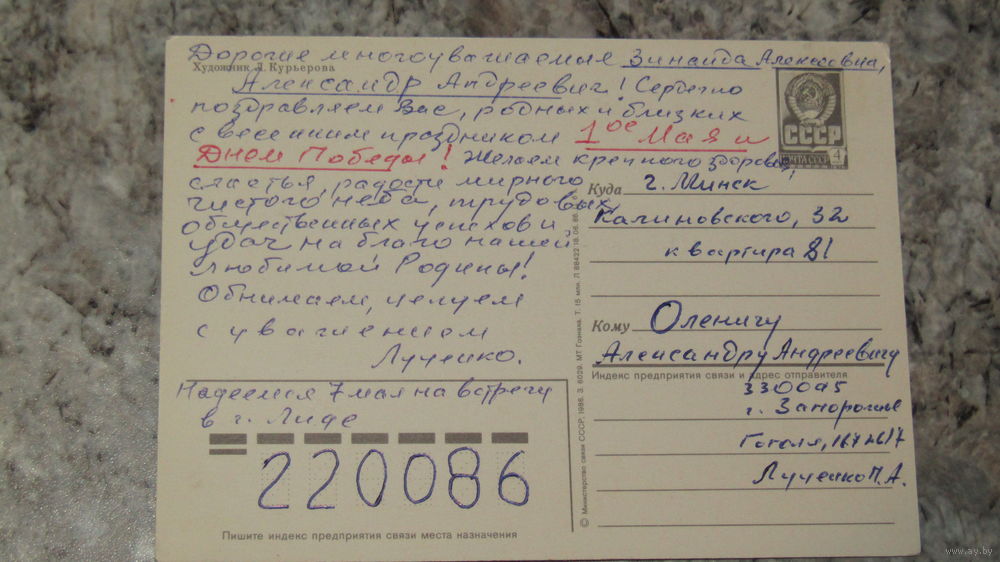 Дорогие многоуважаемые Зинаида Алексеевна,
Художник Л. Курьерова
Александр Андреевич! Сердечно
поздравляем Вас, родных и близких
с весенним праздником 1ое Мая и
Днем Победы! Желаем крепкого здоровья,
счастья, радости мирного
чистого неба, трудовых,
общественных успехов и
удач на благо нашей
любимой Родины!
Обнимаем, целуем
с уважением
Лученко.
Надеемся 7 мая на встречу
в г. Лиде
220086
Пишите индекс предприятия связи места назначения
© Министерство связи СССР, 1986. З. 6029. МТ Гознака. Т. 15 млн. Л 88422 18.06.86
СССР
ПОЧТА СССР 4
Куда г. Минск
Калиновского, 32
квартира 81
Кому Оленичу
Александру Андреевичу
Индекс предприятия связи и адрес отправителя
330095
г. Запорожье
Гоголя,
Лученко П. А.
www.ay.by